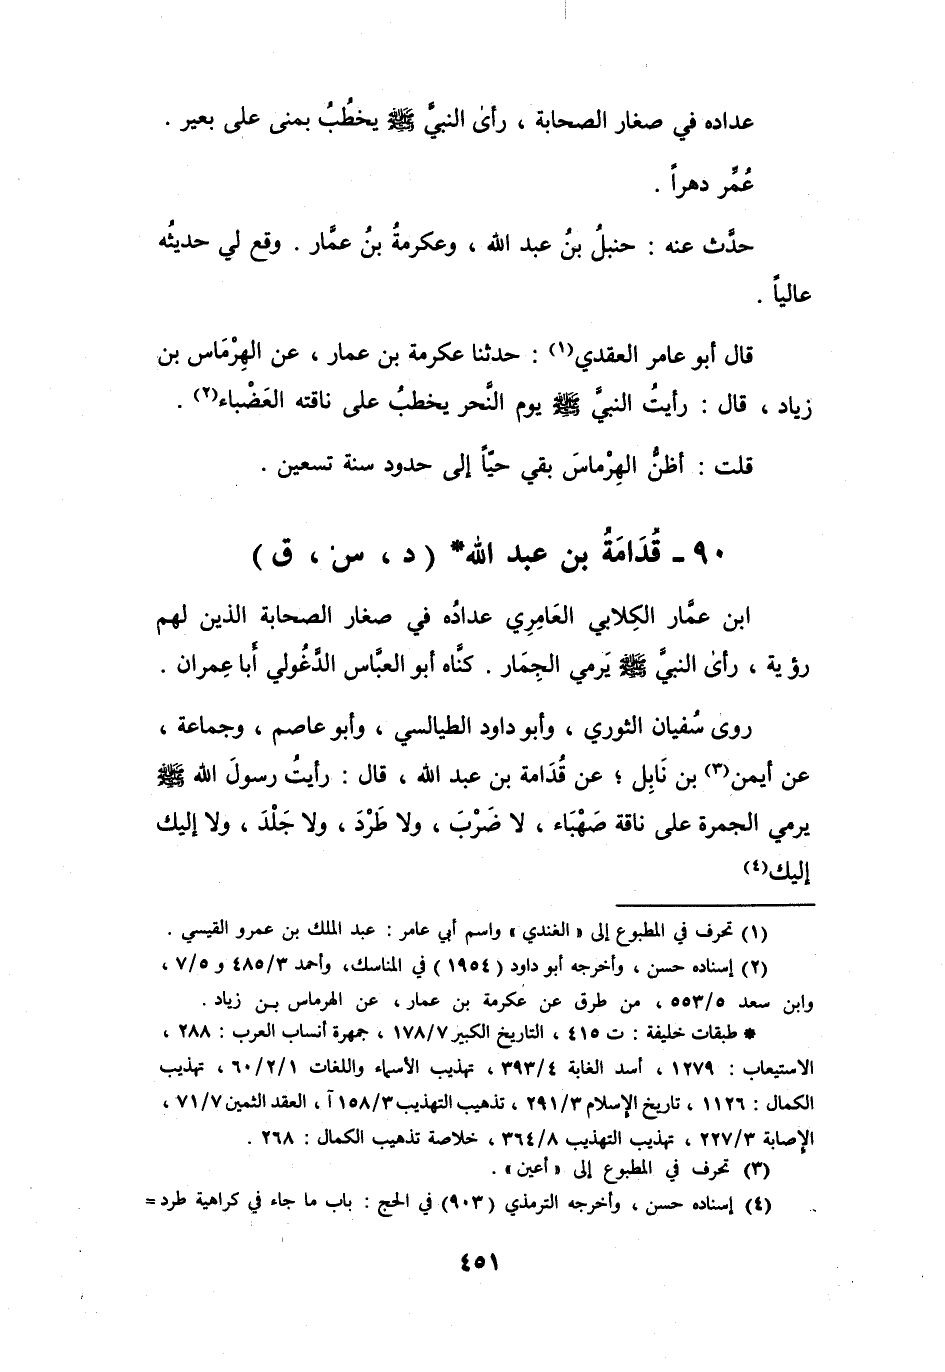 عداده في صغار الصحابة ، رأىٰ النبيَّ ﷺ يخطُبُ بمنى على بعير .
عُمِّر دهراً .
حدَّث عنه : حنبلُ بنُ عبد الله ، وعكرمةُ بنُ عمَّار . وقع لي حديثُه
عالياً .
قال أبو عامر العقدي(١) : حدثنا عكرمة بن عمار ، عن الهِرْمَاس بن
زياد ، قال : رأيتُ النبيَّ ﷺ يوم النَّحر يخطبُ على ناقته العَضْباء(٢) .
قلت : أظنُّ الهِرْماسَ بقي حيّاً إلى حدود سنة تسعين .
٩٠ ـ قُدَامَةُ بن عبد الله* ( د ، س ، ق )
ابن عمَّار الكِلابي العَامِرِي عدادُه في صغار الصحابة الذين لهم
رؤية ، رأىٰ النبيَّ ﷺ يَرمي الجِمَار . كنَّاه أبو العبَّاس الدَّغُولي أَبا عمران .
روى سُفيان الثوري ، وأبو داود الطيالسي ، وأبو عاصم ، وجماعة ،
عن أيمن(٣) بن نَابِل ؛ عن قُدَامة بن عبد الله ، قال : رأيتُ رسولَ الله ﷺ
يرمي الجمرة على ناقة صَهْبَاء ، لا ضَرْبَ ، ولا طَرْدَ ، ولا جَلْدَ ، ولا إليك
إليك(٤)
(١) تحرف في المطبوع إلى «الغندي» واسم أبي عامر : عبد الملك بن عمرو القيسي .
(٢) إسناده حسن ، وأخرجه أبو داود (١٩٥٤) في المناسك، وأحمد ٤٨٥/٣ و ٧/٥ ،
وابن سعد ٥٥٣/٥ ، من طرق عن عكرمة بن عمار ، عن الهرماس بن زياد .
* طبقات خليفة : ت ٤١٥ ، التاريخ الكبير ١٧٨/٧ ، جمهرة أنساب العرب : ٢٨٨ ،
الاستيعاب : ١٢٧٩ ، أسد الغابة ٣٩٣/٤ ، تهذيب الأسماء واللغات ٦٠/٢/١ ، تهذيب
الكمال : ١١٢٦ ، تاريخ الإسلام ٢٩١/٣ ، تذهيب التهذيب ١٥٨/٣ آ ، العقد الثمين ٧١/٧ ،
الإصابة ٢٢٧/٣ ، تهذيب التهذيب ٣٦٤/٨ ، خلاصة تذهيب الكمال : ٢٦٨ .
(٣) تحرف في المطبوع إلى «أعين» .
(٤) إسناده حسن ، وأخرجه الترمذي (٩٠٣) في الحج : باب ما جاء في كراهية طرد =
٤٥١